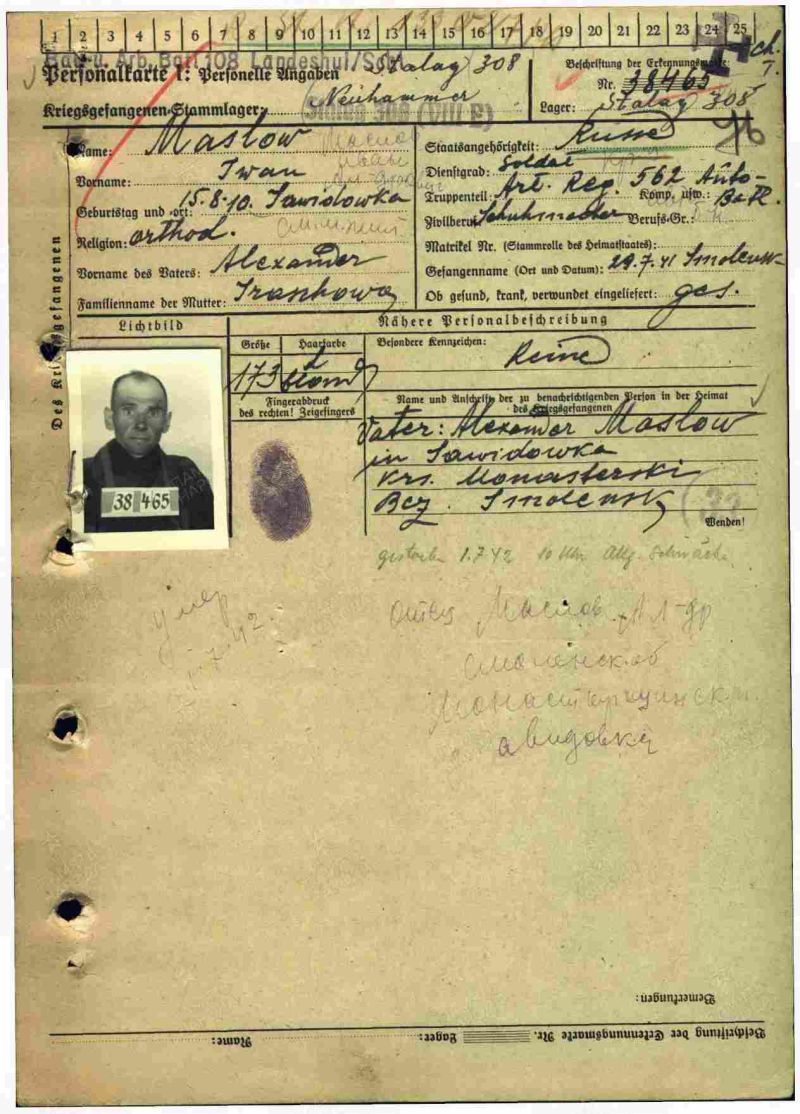 1 2 3 4 5 6 7 8 9 10 11 12 13 14 15 16 17 18 19 20 21 22 23 24 25
Bau u. Arb. Batl. 108
Personalkarte I: Personelle Angaben
Stalag 308
Beschriftung der Erkennungsmarke
Nr. 38465
Kriegsgefangenen-Stammlager:
Neuhammer
Stalag 308 (VIII E)
Lager: Stalag 308
Des Kriegsgefangenen
Name: Maslow
Маслов
Vorname: Iwan
Иван
Geburtstag und -ort: 15.8.10. Sawidowka
Religion: orthod.
Vorname des Vaters: Alexander
Familienname der Mutter:
Staatsangehörigkeit: Russe
Dienstgrad: Soldat
Truppenteil: Art. Reg. 562 Auto-Batl. Komp. usw.:
Zivilberuf: Schuhmacher Berufs-Gr.:
Matrikel Nr. (Stammrolle des Heimatstaates):
Gefangennahme (Ort und Datum): 29.7.41 Smolensk
Ob gesund, krank, verwundet eingeliefert: ges.
Lichtbild
Nähere Personalbeschreibung
Größe
Haarfarbe
Besondere Kennzeichen:
173
blond
Keine
Fingerabdruck
des rechten! Zeigefingers
Name und Anschrift der zu benachrichtigenden Person in der Heimat
des Kriegsgefangenen
Vater: Alexander Maslow
in Sawidowka
Krs. Monasterski
Bez. Smolensk
38 465
Wenden!
gestorben 1.7.42 10 Uhr Allg. Schwäche
умер
7.42
отец Маслов Ал-др
смоленск об
Монастырщинск
авидовка
Bemerkungen:
Beschriftung der Erkennungsmarke Nr. Lager: Name: